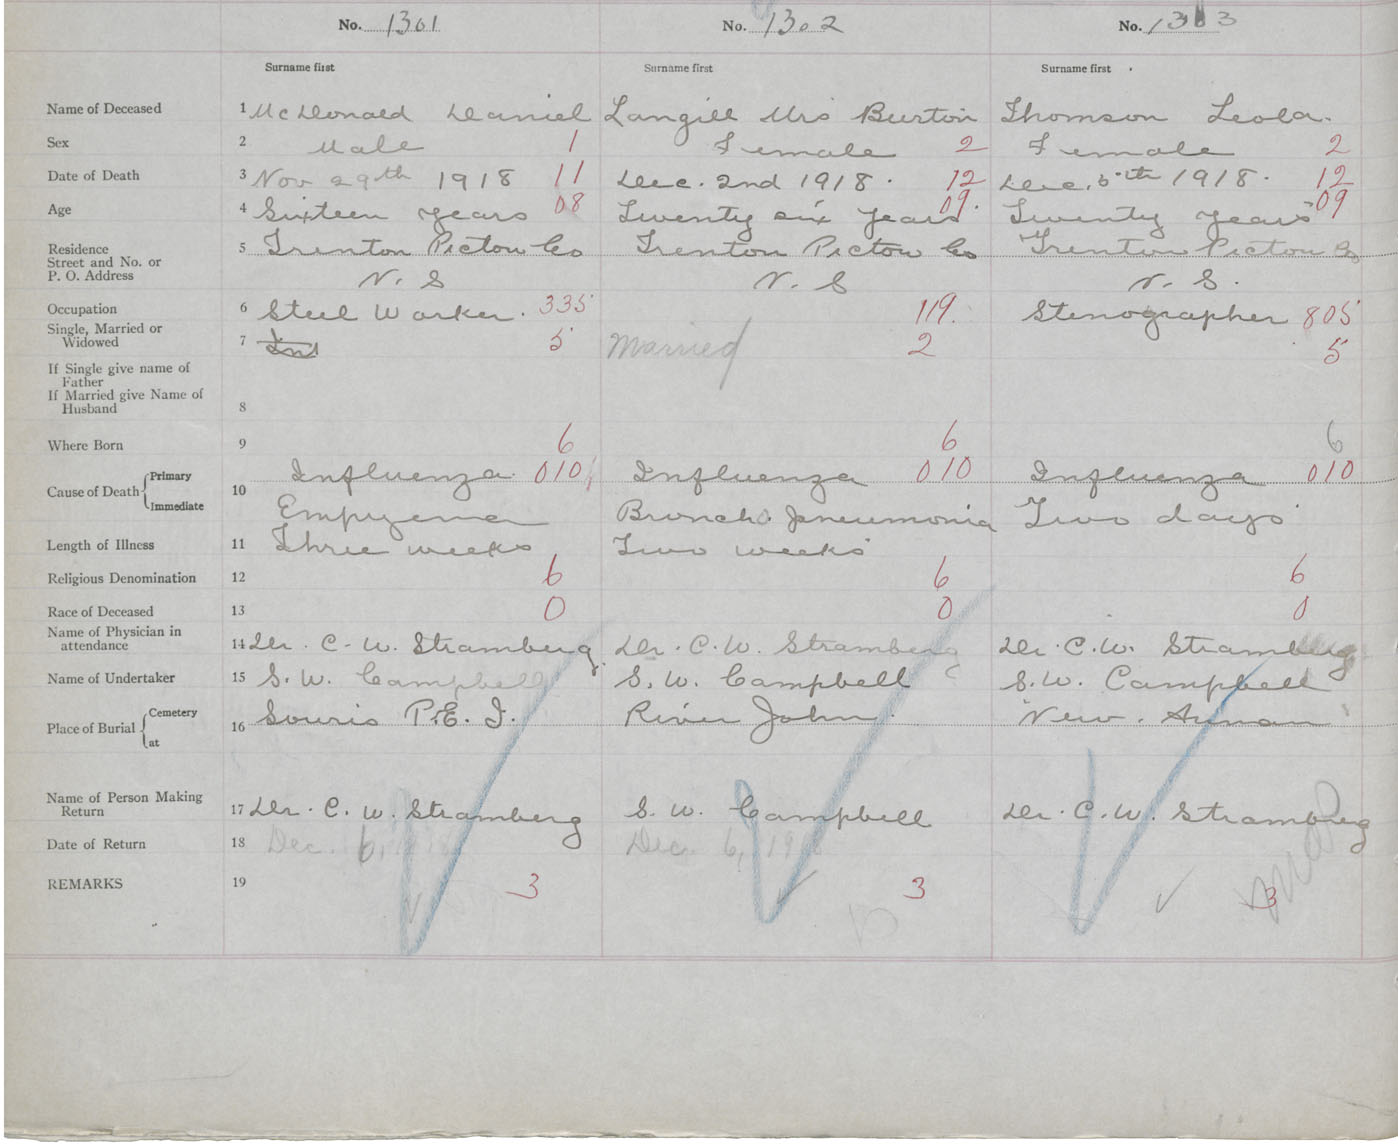 No. 1301 No. 1302 No. 1303
Surname first Surname first Surname first
Name of Deceased 1 McDonald Daniel Langill Mrs Burton Thomson Leola.
Sex 2 Male 1 Female 2 Female 2
Date of Death 3 Nov 29th 1918 11 Dec. 2nd 1918. 12 Dec. 5th 1918. 12
Age 4 Sixteen years 08 Twenty six years 09. Twenty years 09
Residence
Street and No. or
P. O. Address
5 Trenton Pictou Co Trenton Pictou Co Trenton Pictou Co
N. S N. S N. S.
Occupation 6 Steel Worker. 335 119. Stenographer 805
Single, Married or
Widowed 7 5 Married 2 5
If Single give name of
Father
If Married give Name of
Husband 8
Where Born 9 6 6 6
Cause of Death Primary Immediate 10
Influenza 010 Influenza 010 Influenza 010
Empyema Broncho pneumonia Two days
Length of Illness 11 Three weeks Two weeks
Religious Denomination 12 6 6 6
Race of Deceased 13 0 0 0
Name of Physician in
attendance 14 Dr. C. W. Stramberg Dr. C. W. Stramberg Dr. C. W. Stramberg
Name of Undertaker 15 S. W. Campbell S. W. Campbell S. W. Campbell
Place of Burial Cemetery at 16 Souris P.E.I. River John. New. Annan
Name of Person Making
Return 17 Dr. C. W. Stramberg S. W. Campbell Dr. C. W. Stramberg
Date of Return 18 Dec. 6, 1918 Dec. 6, 1918
REMARKS 19 3 3 3